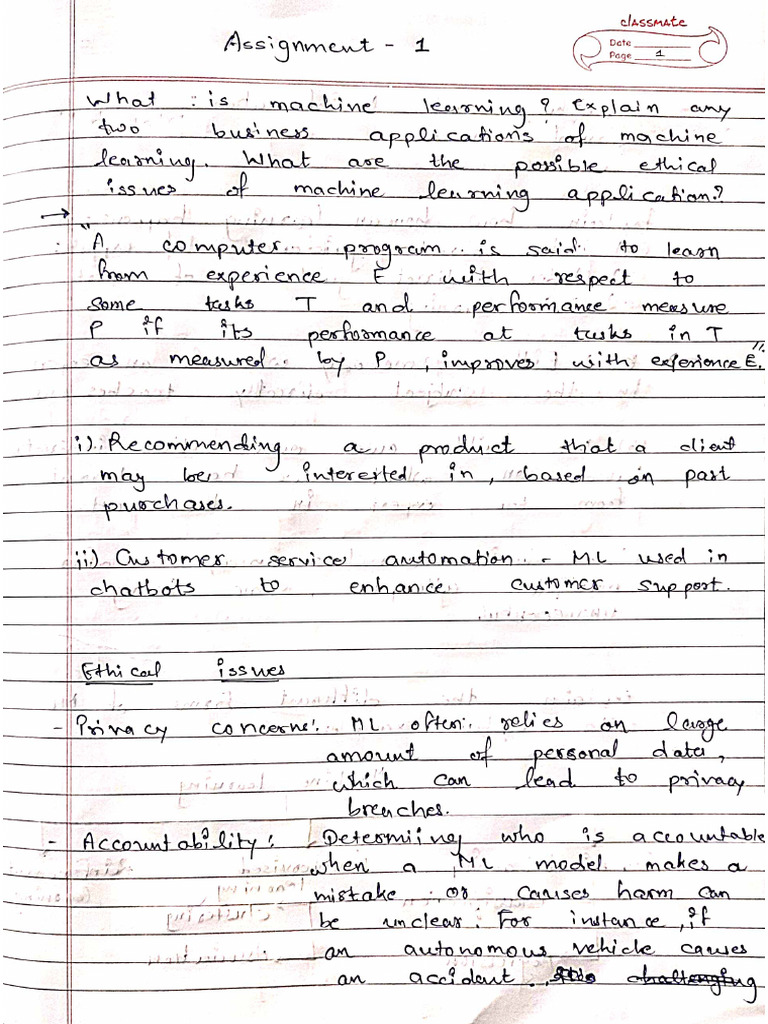 Assignment - 1
classmate
Date
Page 1
What is machine learning? Explain any
two business applications of machine
learning. What are the possible ethical
issues of machine learning application?
→
" A computer program is said to learn
from experience E with respect to
some tasks T and performance measure
P if its performance at tasks in T
as measured by P, improves with experience E. "
i) Recommending a product that a client
may be interested in, based on past
purchases.
ii) Customer service automation - ML used in
chatbots to enhance customer support.
Ethical issues
- Privacy concerns: ML often relies on large
amount of personal data,
which can lead to privacy
breaches.
- Accountability: Determiing who is accountable
when a ML model makes a
mistake or causes harm can
be unclear. For instance, if
an autonomous vehicle causes
an accident. challenging